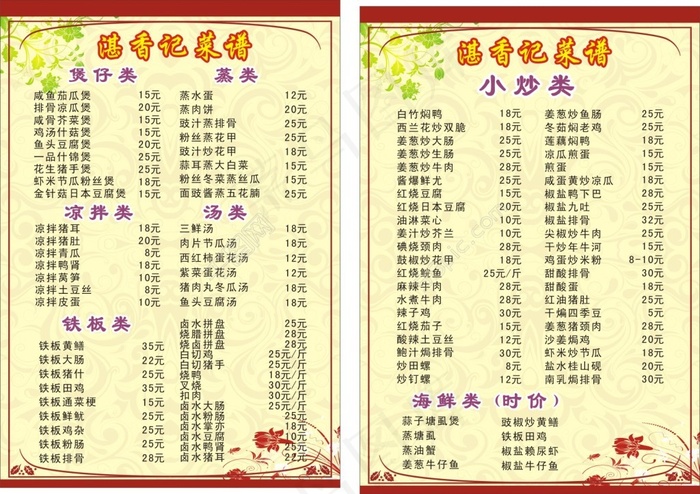 湛香记菜谱
煲仔类
咸鱼茄瓜煲 15元
排骨凉瓜煲 20元
咸骨芥菜煲 15元
鸡汤什菇煲 15元
鱼头豆腐煲 20元
一品什锦煲 25元
花生猪手煲 25元
虾米节瓜粉丝煲 18元
金针菇日本豆腐煲 15元
蒸类
蒸水蛋 12元
蒸肉饼 20元
豉汁蒸排骨 25元
粉丝蒸花甲 25元
豉汁炒花甲 18元
蒜耳蒸大白菜 15元
粉丝冬菜蒸丝瓜 15元
面豉酱蒸五花腩 25元
凉拌类
凉拌猪耳 18元
凉拌猪肚 20元
凉拌青瓜 8元
凉拌鸭肾 15元
凉拌莴笋 10元
凉拌土豆丝 10元
凉拌皮蛋 10元
汤类
三鲜汤 18元
肉片节瓜汤 18元
西红柿蛋花汤 12元
紫菜蛋花汤 12元
猪肉丸冬瓜汤 18元
鱼头豆腐汤 18元
铁板类
铁板黄鳝 35元
铁板大肠 22元
铁板猪什 25元
铁板田鸡 35元
铁板通菜梗 15元
铁板鲜鱿 25元
铁板鸡杂 25元
铁板粉肠 25元
铁板排骨 28元
卤水拼盘 25元
烧腊拼盘 28元
烧卤拼盘 25元
白切鸡 25元/斤
白切猪手 25元/斤
烧鸭 25元/斤
叉烧 30元/斤
扣肉 30元/斤
卤水大肠 25元
卤水粉肠 25元
卤水掌亦 18元
卤水豆腐 10元
卤水鸭肾 25元
卤水猪耳 22元
湛香记菜谱
小炒类
白竹焖鸭 18元
西兰花炒双脆 18元
姜葱炒大肠 25元
姜葱炒生肠 25元
姜葱炒牛肉 28元
酱爆鲜尤 25元
红烧豆腐 15元
红烧日本豆腐 20元
油淋菜心 10元
姜汁炒芥兰 10元
碘烧颈肉 28元
鼓椒炒花甲 18元
红烧鲩鱼 25元/斤
麻辣牛肉 28元
水煮牛肉 28元
辣子鸡 30元
红烧茄子 15元
酸辣土豆丝 12元
鲍汁焗排骨 30元
炒田螺 12元
炒钉螺 12元
姜葱炒鱼肠 25元
冬菇焖老鸡 25元
莲藕焖鸭 18元
凉瓜煎蛋 15元
煎蛋 15元
咸蛋黄炒凉瓜 18元
椒盐鸭下巴 28元
椒盐九吐 25元
椒盐排骨 30元
尖椒炒牛肉 25元
干炒牛牛河 15元
鸡蛋炒米粉 8-10元
甜酸排骨 30元
甜酸蛋 18元
红油猪肚 25元
干煸四季豆 15元
姜葱炒猪颈 25元
沙姜焗鸡 20元
虾米炒节瓜 18元
盐水桂山砚 20元
南乳焗排骨 30元
海鲜类(时价)
蒜子塘虱煲
蒸塘虱
蒸油蟹
姜葱牛仔鱼
豉椒炒黄鳝
铁板田鸡
椒盐赖尿虾
椒盐牛仔鱼